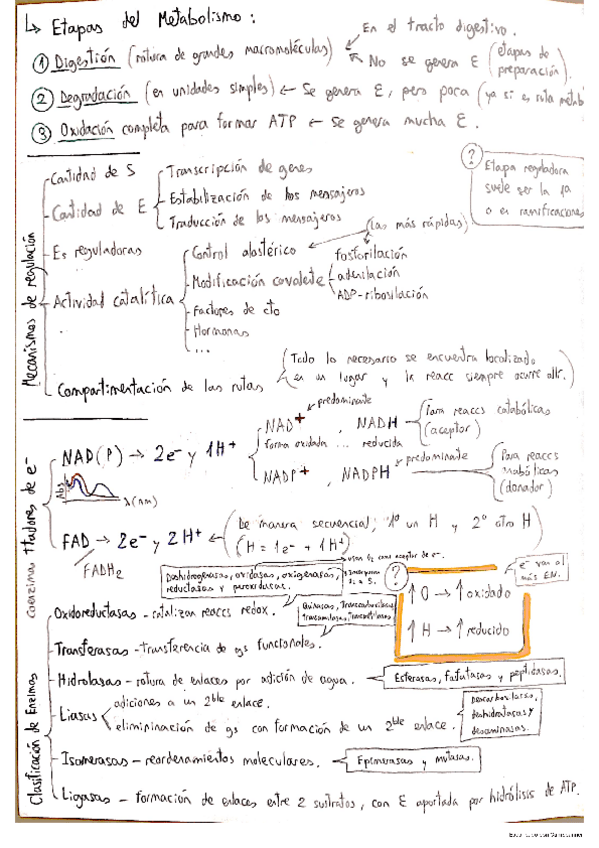 ↳ Etapas del Metabolismo:
① Digestión (rotura de grandes macromoléculas)
En el tracto digestivo.
No se genera E (etapas de preparación).
② Degradación (en unidades simples) ← Se genera E, pero poca (ya si es ruta metab
③ Oxidación completa para formar ATP ← Se genera mucha E.
Mecanismos de regulación
Cantidad de S
Cantidad de E
Transcripción de genes
Estabilización de los mensajeros
Traducción de los mensajeros
?
Etapa reguladora
suele ser la 1a
o en ramificaciones
Es reguladoras
Actividad catalítica
...
Control alostérico
(las más rápidas)
Modificación covalente
fosforilación
adenilación
ADP-ribosilación
Factores de cto
Hormonas
...
Compartimentación de las rutas
(Todo lo necesario se encuentra localizado
en un lugar y la reacc siempre ocurre allí.)
coenzimas ttadores de e-
NAD(P) → 2e- y 1H+
Abs
λ(nm)
predominante
NAD+ , NADH
forma oxidada ... reducida
(Para reaccs catabólicas
(aceptor)
NADP+ , NADPH
predominante
(Para reaccs
(donador)
FAD → 2e- y 2H+
FADH2
(De manera secuencial; 1º un H y 2º otro H)
(H = 1e- + 1H+)
usan O2 como aceptor de e-.
Clasificación de Enzimas
Deshidrogenasas, oxidasas, oxigenasas,
reductasas y peroxidasas.
?
e- van al
más EN.
↑ O → ↑ oxidado
↑ H → ↑ reducido
Oxidoreductasas - catalizan reaccs redox.
Transferasas - transferencia de gs funcionales.
Hidrolasas - rotura de enlaces por adición de agua.
Esterasas, fosfatasas y peptidasas.
Liasas
adiciones a un 2ble enlace.
elimininación de gs con formación de un 2ble enlace.
Descarboxilasas,
deshidratasas y
desaminasas.
Isomerasas - reordenamientos moleculares.
Epimerasas y mutasas.
Ligasas - formación de enlaces entre 2 sustratos, con E aportada por hidrólisis de ATP.